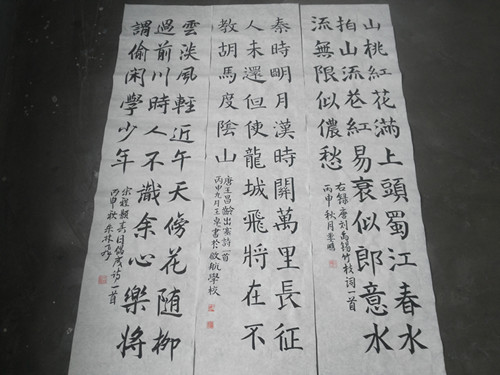 山桃紅花滿上頭蜀江春水
拍山流花紅易衰似郎意水
流無限似儂愁
右錄唐刘禹錫竹枝詞一首
丙申秋月李
秦時明月漢時關萬里長征
人未還但使龍城飛將在不
教胡馬度陰山
唐王昌齡出塞詩一首
丙申九月王書於啟航學校
雲淡風輕近午天傍花隨柳
過前川時人不識余心樂將
謂偷閑學少年
宋程顥春日偶成詩一首
丙申秋